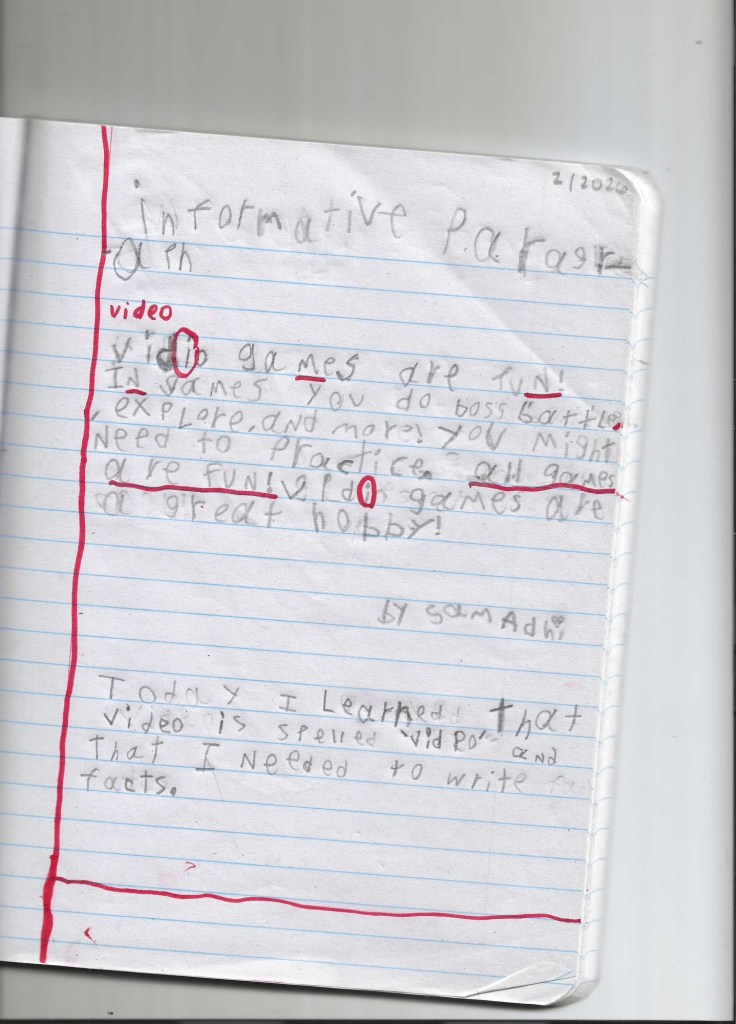 2/2026
informative Paragr-
aph
video
vidio games are fUN!
IN games you do boss battle
, expLore, and more! you Might
Need to Practice. all games
are fUN! Vidio games are
a great hobby!
by SamAdhi
Today I Learned that
video is spelled 'video' and
that I Needed to write
facts.